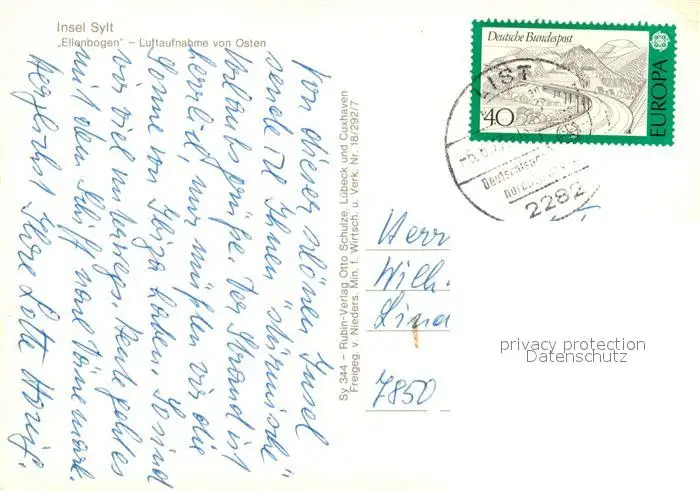 Insel Sylt
„Ellenbogen" – Luftaufnahme von Osten
Von dieser schönen Insel
sende ich Ihnen "stürmische"
Urlaubsgrüße. Der Strand ist
herrlich, nur müßten wir die
Sonne von Ibiza haben. So sind
wir viel unterwegs. Heute geht es
mit dem Schiff nach Dänemark.
Herzlichst Ihre Lotte
Sy 344 – Rubin-Verlag Otto Schutze, Lübeck und Cuxhaven
Freigeg. v. Nieders. Min. f. Wirtsch. u. Verk. Nr. 18/292/7
Deutsche Bundespost
40
EUROPA
LIST
Deutschlands
2282
Herr
Wilh.
Lina
7850
privacy protection
Datenschutz